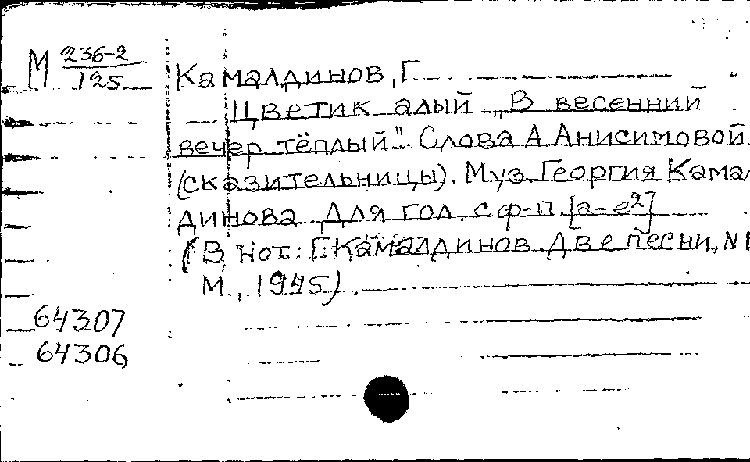 М 236-2
125
Камалдинов, Г.
Цветик алый „В весенний
вечер тёплый". Слова А. Анисимовой
(сказительницы). Муз. Георгия Камал
динова. Для гол. с ф-п. [a-e²]
(В нот.: Г. Камалдинов. Две песни, N1
М., 1945)
64307
64306